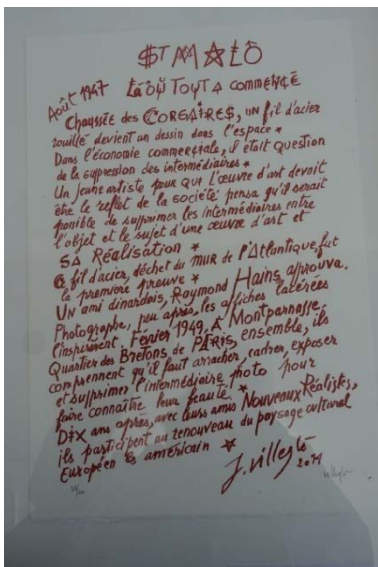 $T MALÔ
Août 1947 Là OÙ TOUT A COMMENCÉ
Chaussée des CORSAIRE$, UN fil d'acier
rouillé devient un dessin dans l'espace *
Dans l'économie commerciale, il était question
de la suppression des intermédiaires *
Un jeune artiste pour QUI L'œuvre d'art devait
être le reflet de la société pensa qu'il serait
possible de supprimer les intermédiaires entre
l'objet et le sujet d'une œuvre d'art et
SA Réalisation *
Ce fil d'acier, déchet du MUR de l'Atlantique, fut
la première preuve *
UN ami dinardais, Raymond Hains, approuva.
Photographe, peu après, les affiches lacérées
l'inspirèrent. Février 1949, À Montparnasse,
Quartier des Bretons de PARIS, ensemble, ils
comprennent qu'il faut arracher, cadrer, exposer
et supprimer l'intermédiaire photo pour
faire connaître leur beauté *
DIX ans après, avec leurs amis Nouveaux Réalistes,
ils participent au renouveau du paysage culturel
Européen & américain ☆
J. Villeglé
2011